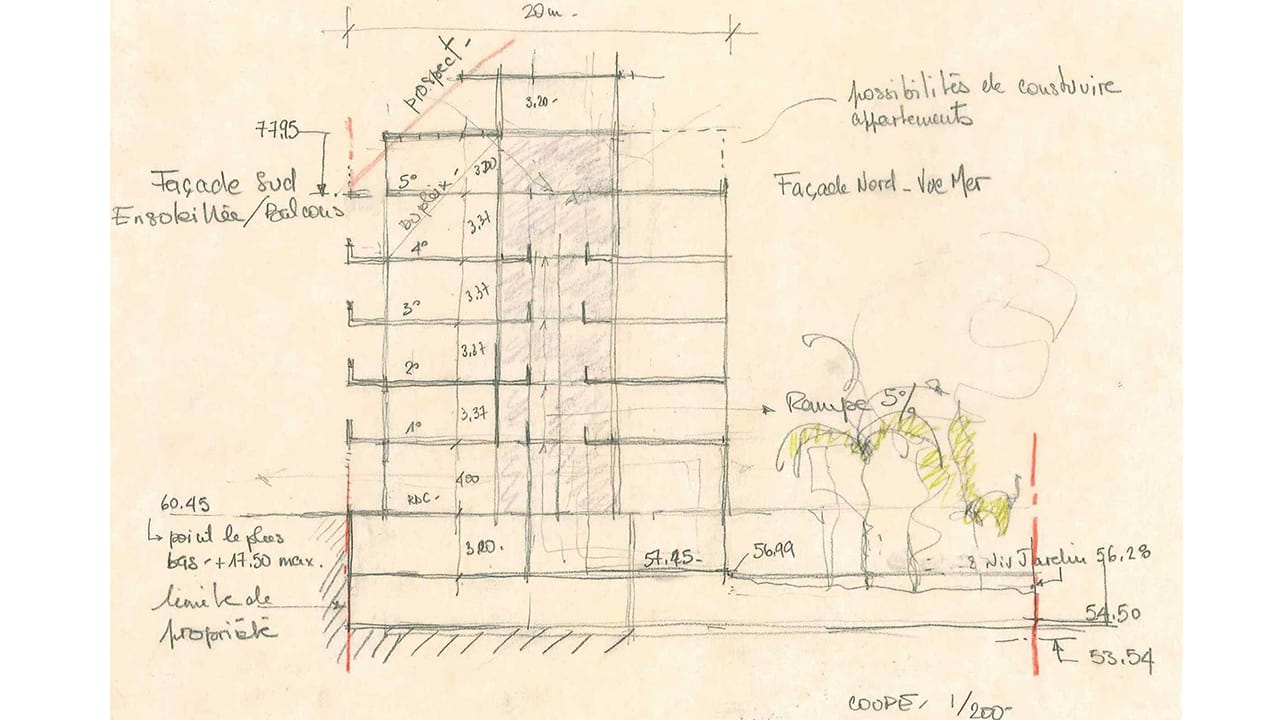 20m.
prospect
3,20
possibilités de construire
appartements
77.95
Façade Sud
Ensoleillée/Balcons
Façade Nord - Vue Mer
5°
3.20
Duplex
3,37
4°
3°
3,37
2°
3,37
Rampe 5%
1°
3,37
RDC
400
60.45
point le plus
bas + 17.50 max.
3.20.
57.45
56.99
Niv Jardin 56.28
limite de
propriété
54.50
53.54
COUPE, 1/200